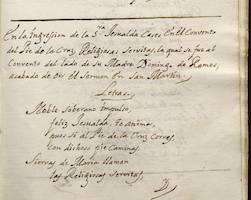 En la Ingression de la S.ra Iesualda Cases En el Convento
del Pie de la Cruz Religiosas Servitas, la qual se fue al
Convento del lado de su Madre Domingo de Ramos,
acabado de oir el Sermon en San Martin.
Letras.
Noble Soberano Impulso,
feliz Iesualda, te anima,
pues si al Pie de la Cruz corres,
con dichoso pie caminas.
Siervas de Maria llaman
las Religiosas Servitas,